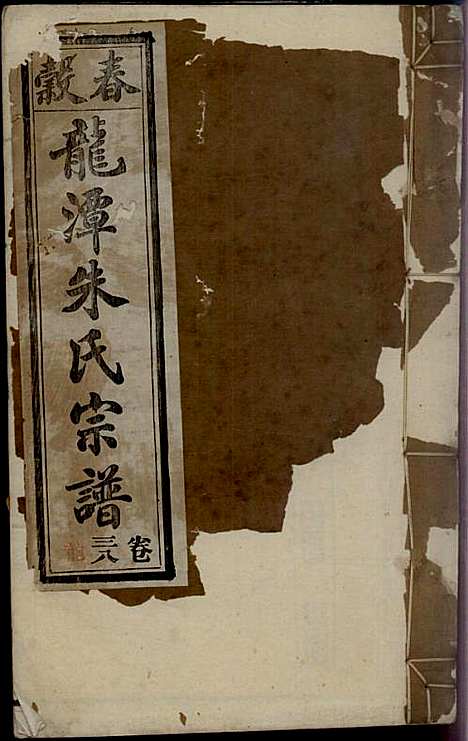 春穀
龍潭朱氏宗譜
卷三八
龍